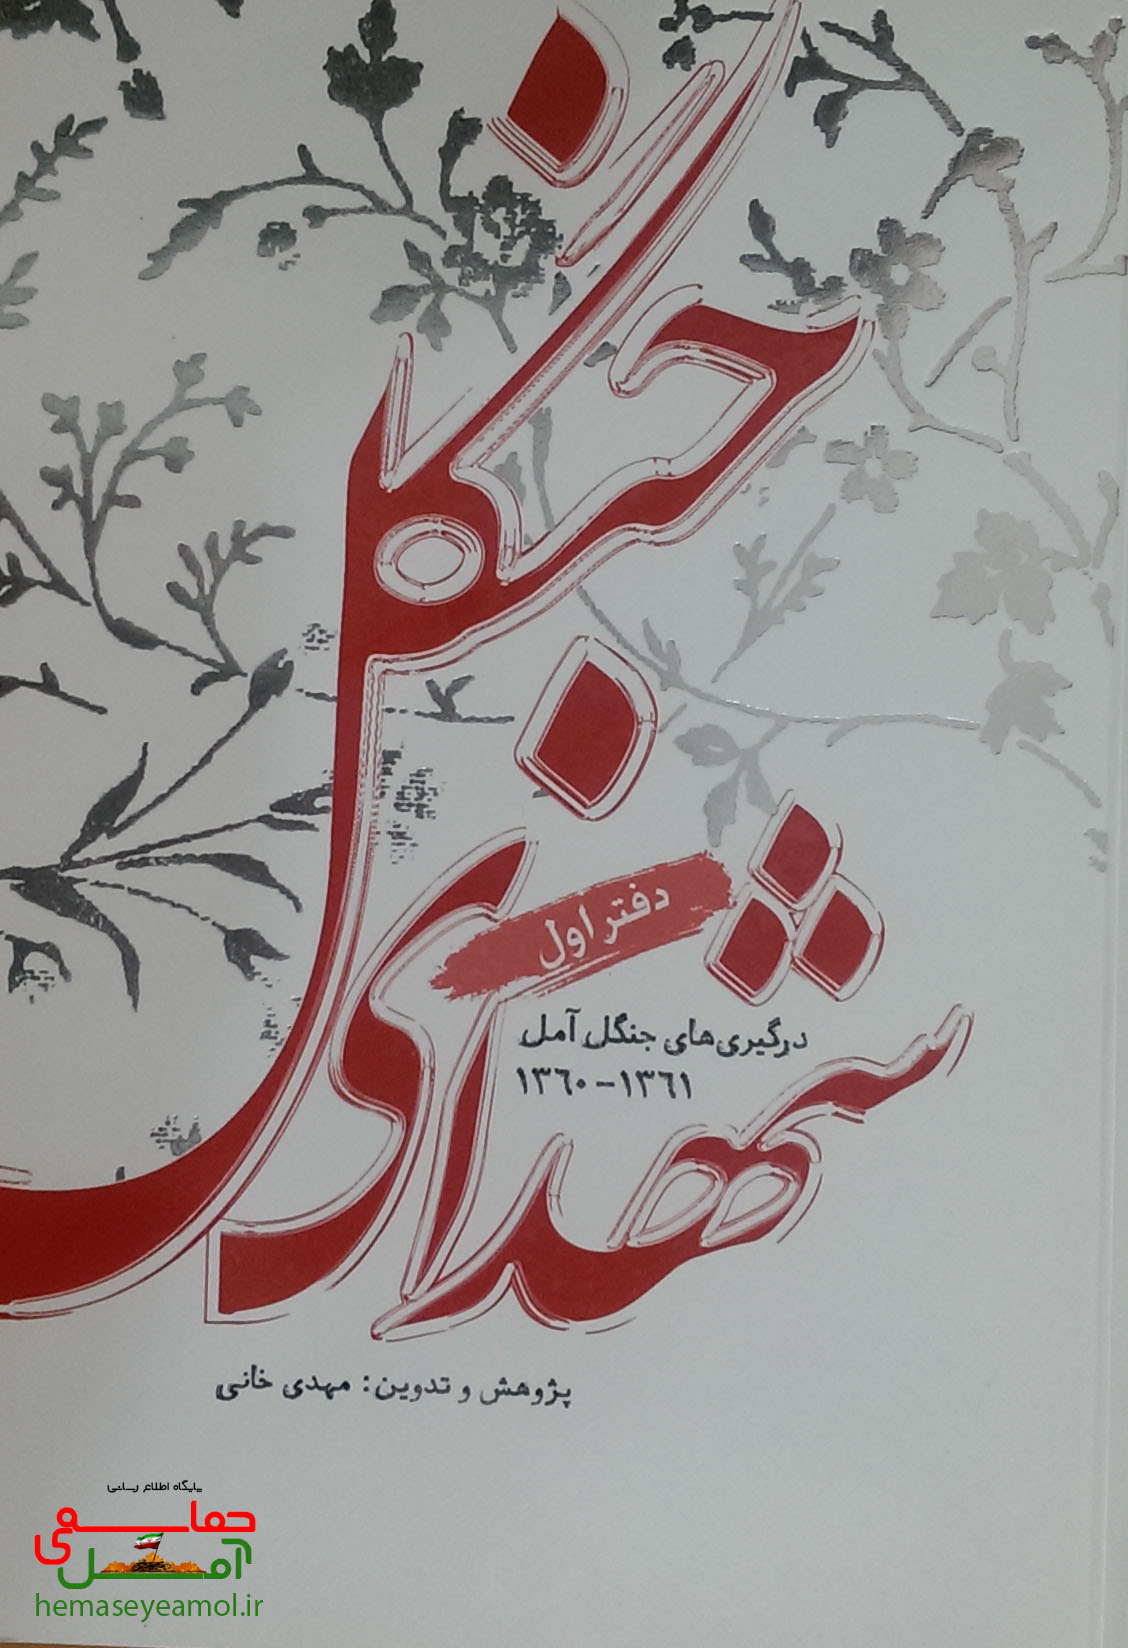 شهدای جنگل
دفتر اول
درگیری‌های جنگل آمل
۱۳۶۰-۱۳۶۱
پژوهش و تدوین: مهدی خانی
پایگاه اطلاع رسانی
حماسه‌ی
آمل
hemaseyeamol.ir